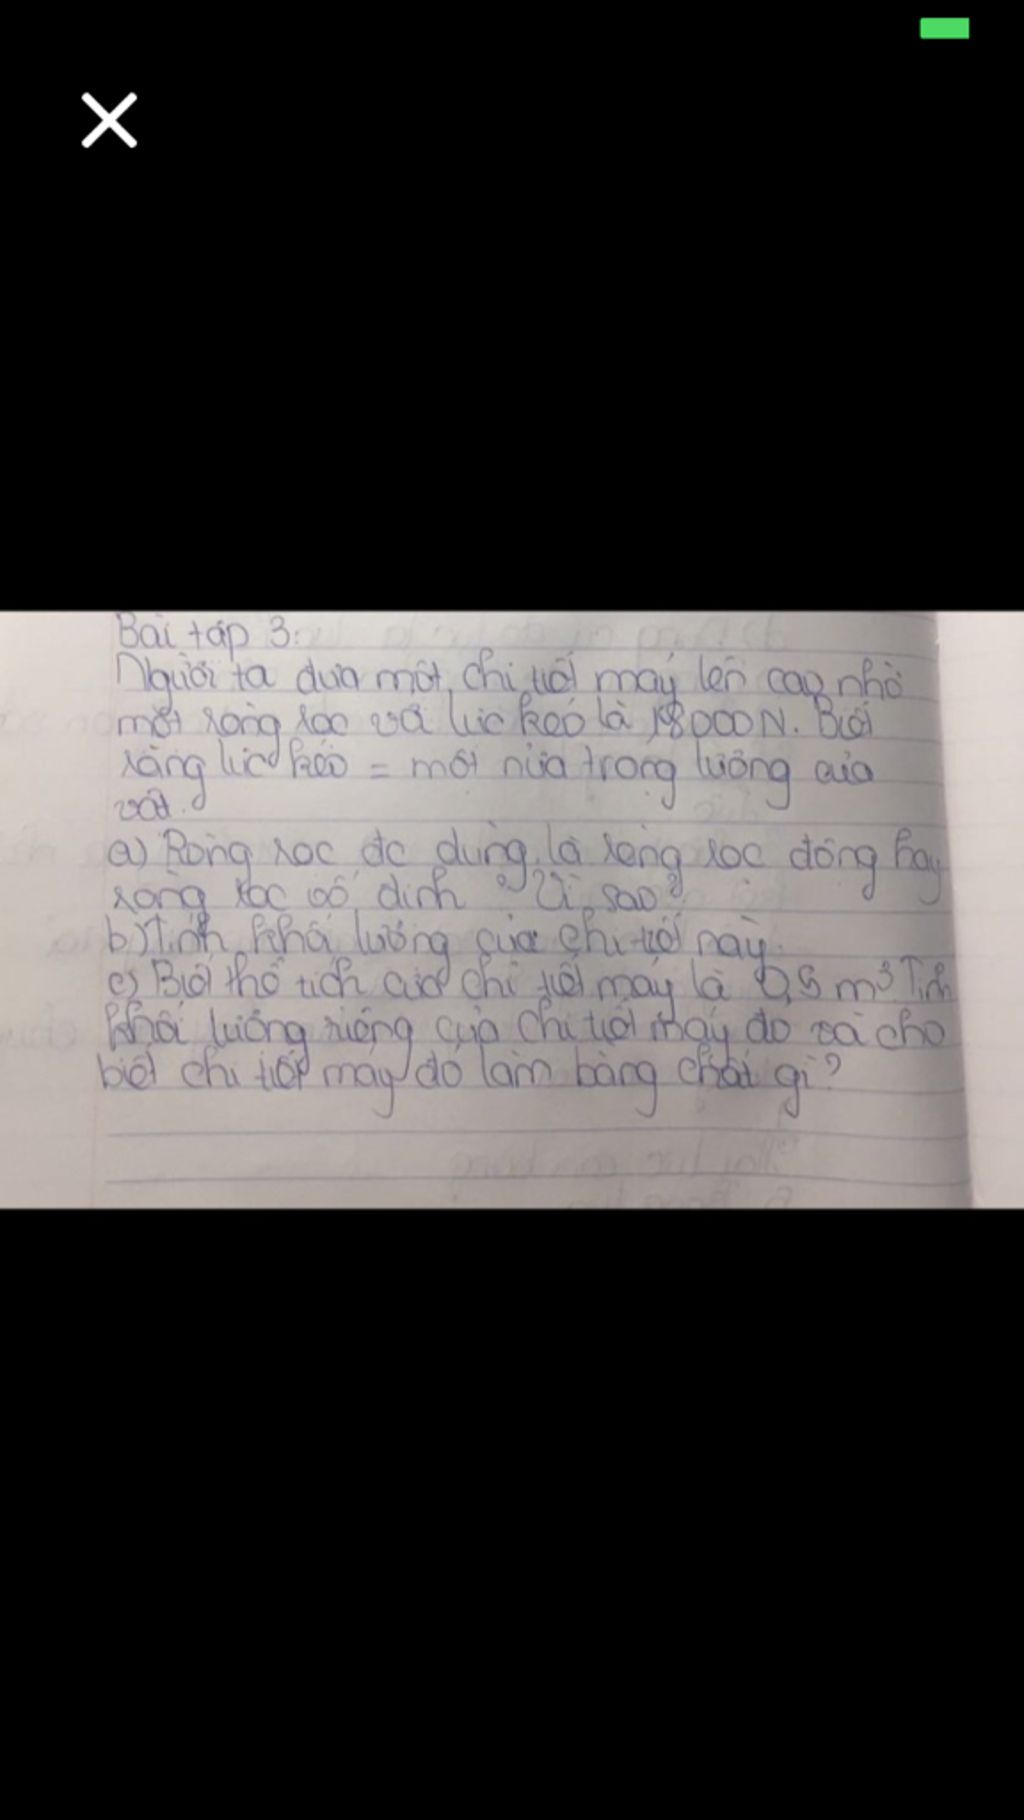 Bài tập 3:
Người ta đưa một chi tiết máy lên cao nhờ
một ròng rọc và lực kéo là 18000N. Biết
rằng lực kéo = một nửa trọng lượng của
vật.
a) Ròng rọc đc dùng là ròng rọc động hay
ròng rọc cố định? Vì sao?
b) Tính khối lượng của chi tiết này.
c) Biết thể tích của chi tiết máy là 0,5 m³ Tính
khối lượng riêng của chi tiết máy đó và cho
biết chi tiết máy đó làm bằng chất gì?